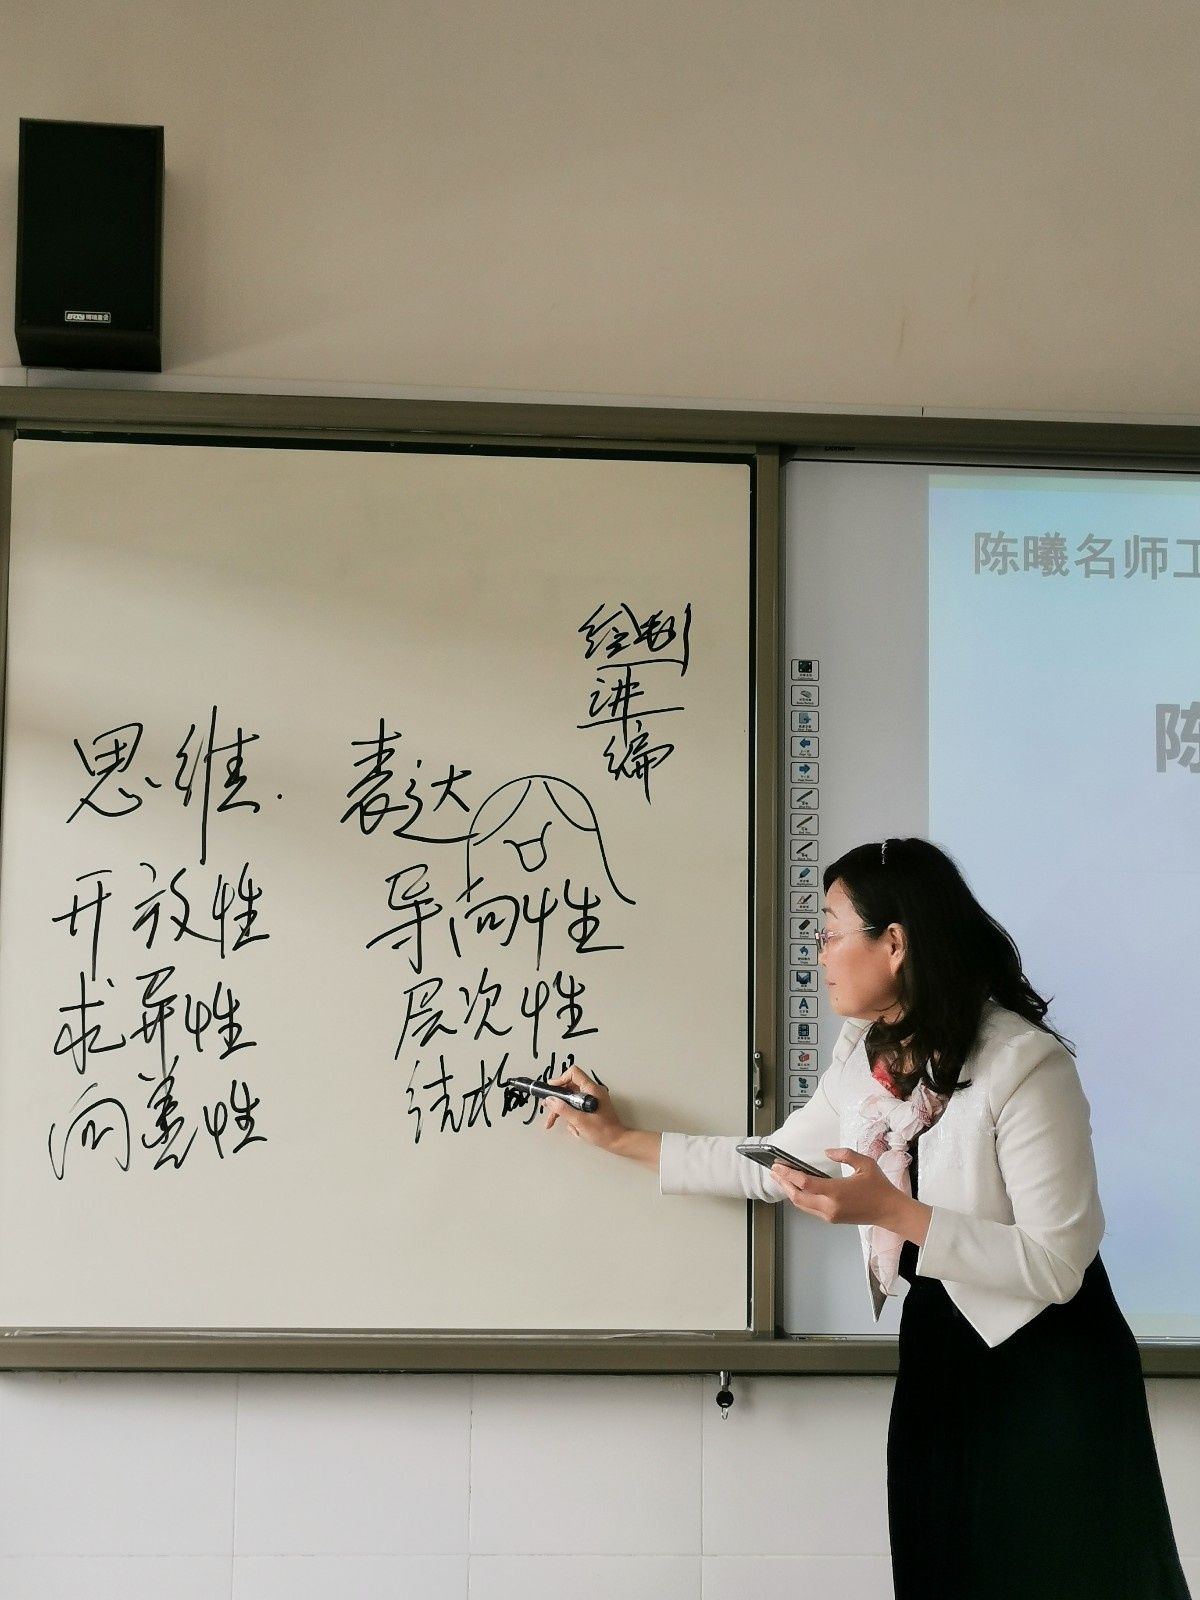 思维.
开放性
求异性
向善性
表达
导向性
层次性
结构
讲
编
陈曦名师工
陈